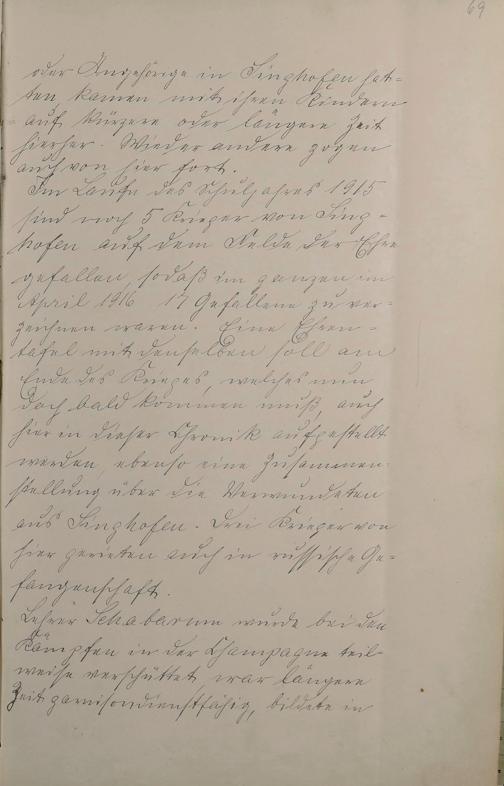 69
oder Angehörige in Singhofen hat-
ten, kamen mit ihren Kindern
auf kürzere oder längere Zeit
hierher. Wieder andere zogen
auch von hier fort.
Im Laufe des Schuljahres 1915
sind noch 5 Krieger von Sing-
hofen auf dem Felde der Ehre
gefallen, sodaß im ganzen im
April 1916 17 Gefallene zu ver-
zeichnen waren. Eine Ehren-
tafel mit denselben soll am
Ende des Krieges, welches nun
doch bald kommen muß, auch
hier in dieser Chronik aufgestellt
werden, ebenso eine Zusammen-
stellung über die Verwundeten
aus Singhofen. Drei Krieger von
hier gerieten auch in russische Ge-
fangenschaft.
Lehrer Schabarum wurde bei den
Kämpfen in der Champagne teil-
weise verschüttet, war längere
Zeit garnisondienstfähig, bildete in